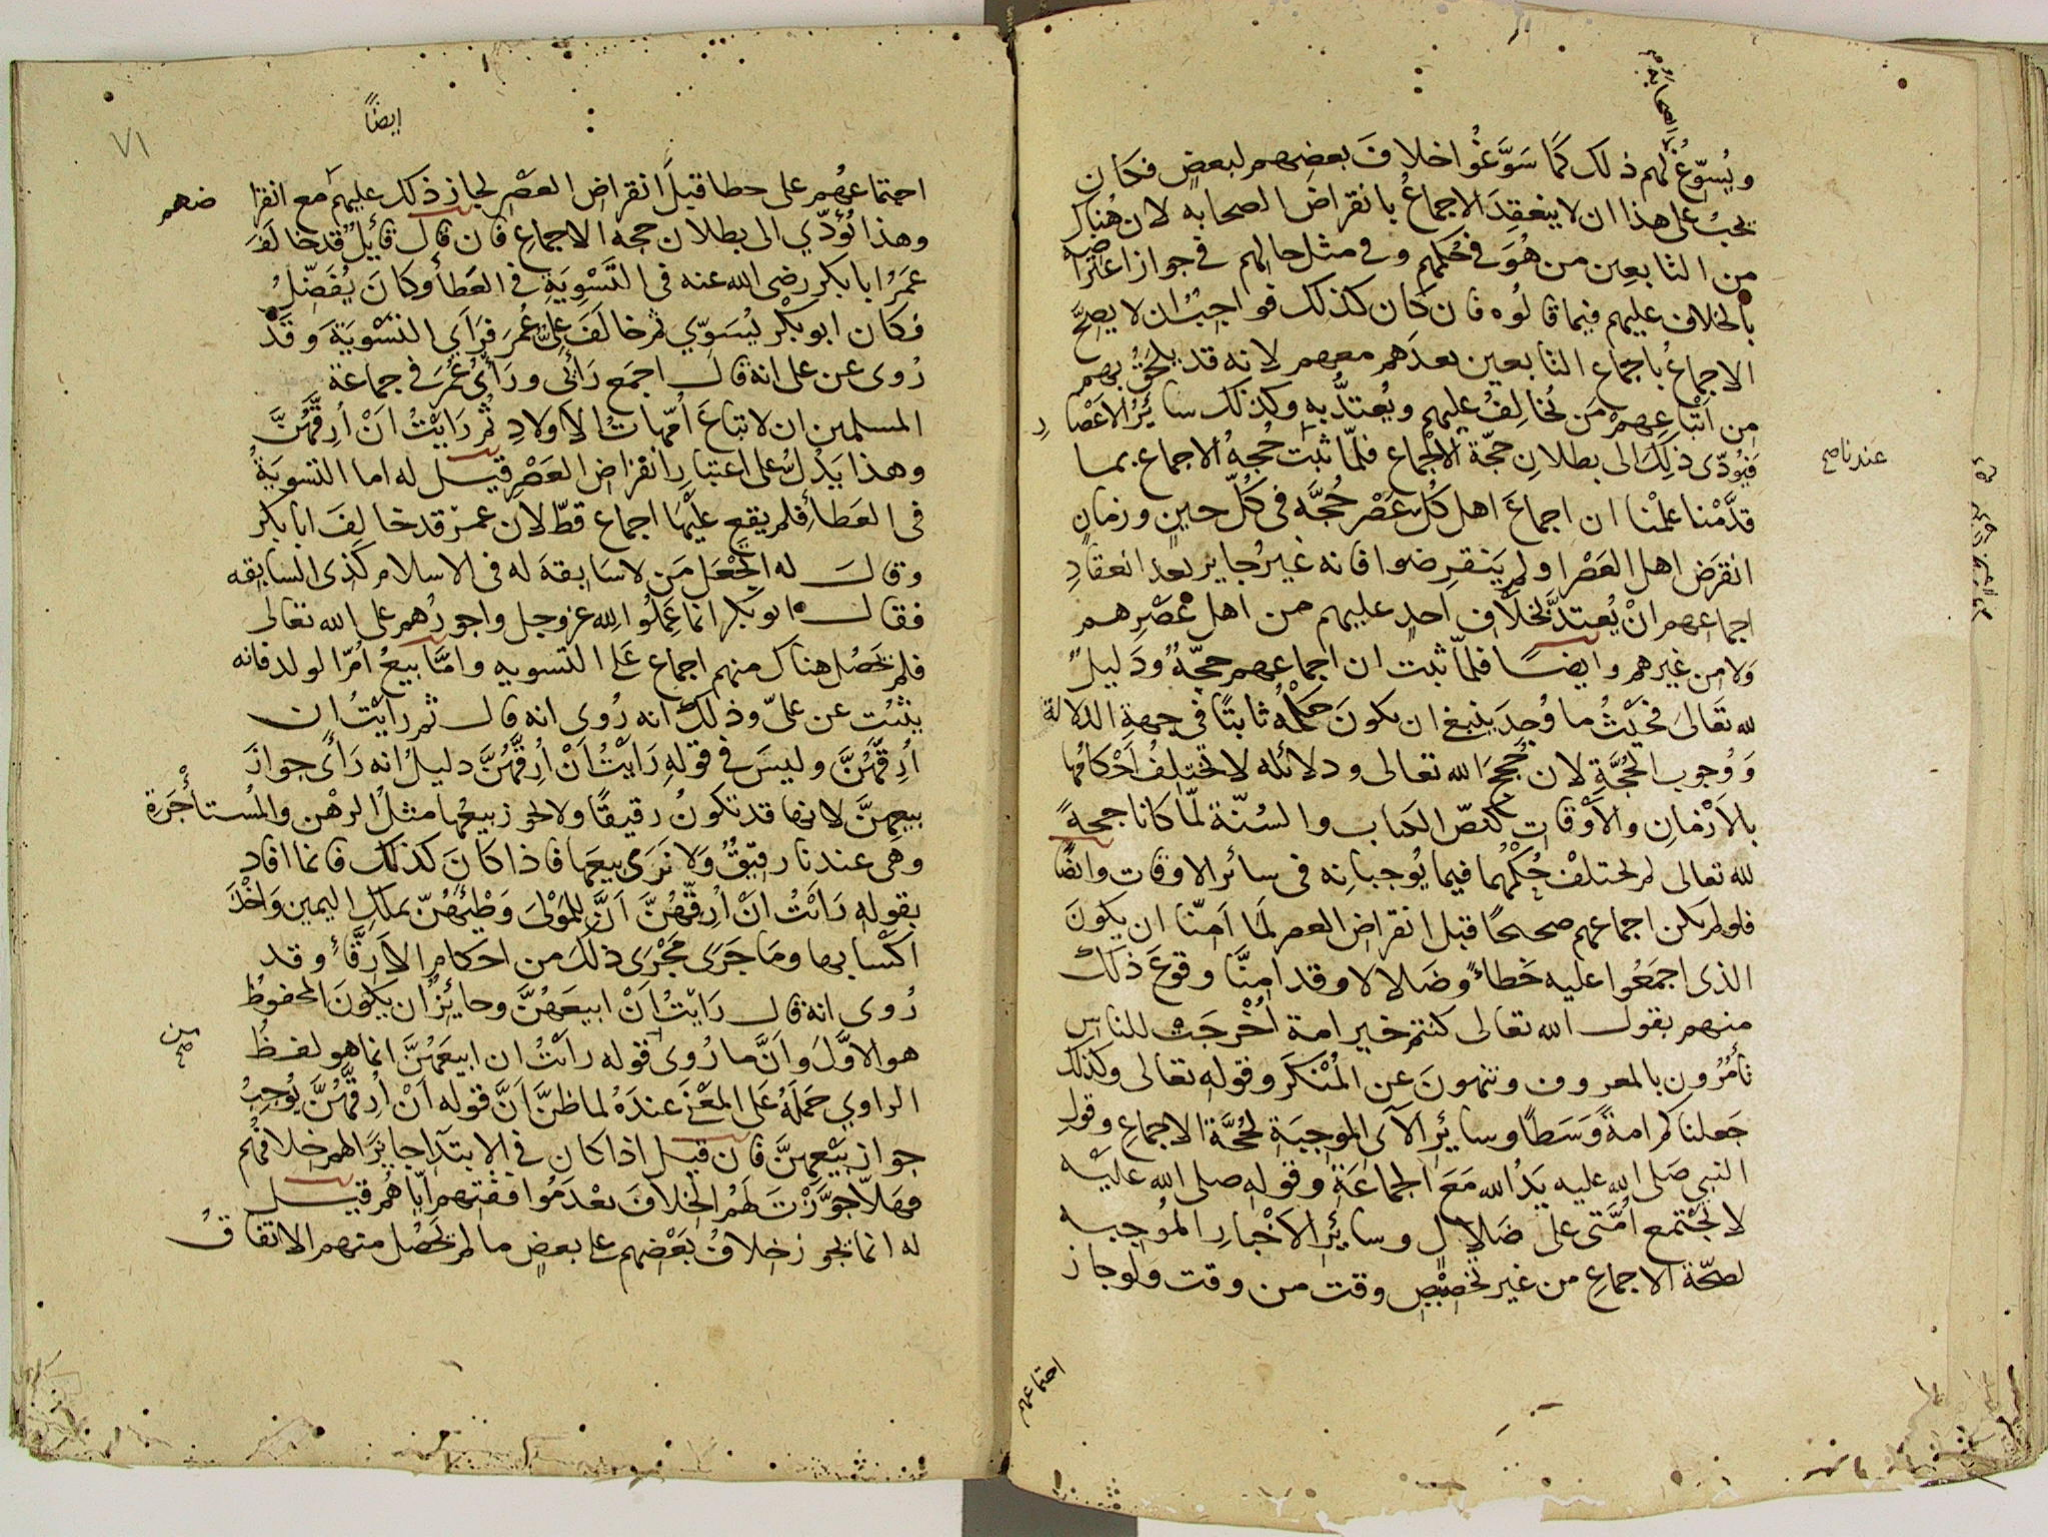 ويُسوّغُ لهم ذلك كما سَوَّغُوا خلافَ بعضِهم لبعضٍ فكان
يجبُ على هذا ان لا ينعقِدَ الاجماعُ بانقراض الصحابه لان هُناك
من التابعِين من هُوَ في حُكمِهم وفي مثل حالهم في جواز اعتراضه
بالخلاف عليهم فيما قالُوه فان كان كذلك فواجبٌ ان لا يصحَّ
الاجماعُ باجماع التابعين بعدَهم معهم لانه قد يلحَقُ بهم
من اَتْباعِهِمْ مَن يُخالِفُ عليهم ويُعتدُّ به وكذلك سائرُ الاَعْصار
فيُودّى ذلِكَ الى بطلانِ حجّة الاجماع فلمّا ثبتَ حُجّهُ الاجماع بما
عندنا صح
قدَّمْنا عَلِمْنا ان اجماعَ اهل كُل عَصْر حُجَّه فى كُلّ حينٍ وزمانٍ
انقرَض اهل العَصْر او لم يَنقرِضوا فانه غيرُ جايز بعد انعقادِ
اجماعهم انْ يُعتدَّ بخلاف احدٍ عليهم من اهل عَصْرِهم
ولا من غيرهم وايضًا فلمّا ثبت ان اجماعهم حجّهٌ ودَليلٌ
لله تعَالىَ فحَيْثُ ما وُجِدَ ينبغ ان يكونَ حُكْمُه ثابتًا في جهة الدلالة
ووُجوب الحُجَّةِ لان حُججَ الله تعالى ودلائله لا تختلِفُ اَحْكامُها
بالاَزْمانِ والاَوْقاتِ كنصّ الكتاب والسُنّة لمّا كانا حجهً
لله تعالى لم يختلفْ حُكْمُهُما فيما يُوجبانِه فى سائر الاوقات وايضًا
فلو لم يكن اجماعهم صحيحًا قبل انقراض العصر لَما اَمِنّا ان يكونَ
الذى اجمَعُوا عليه خَطاءً وضَلالا وقد امنَّا وقوعَ ذلك
منهم بقول الله تعالى كنتم خير امة اُخْرجَتْ للناس
تأمُرُون بالمعروف وتنهونَ عن المُنْكَر وقوله تعالى وكذلك
جَعلناكم امةً وَسَطًا وسايرِ الآى الموجِبَة لحُجَّة الاجماع وقولِ
النبي صَلى الله عليه يَدُ الله مَعَ الجماعَةِ وقولِه صلى الله عليه
لا تَجْتمع اُمّتى على ضَلالٍ وسائرِ الاَخْبارِ المُوجبه
لصحّة الاجماع من غير تخصِيْصِ وقت من وقت ولو جاز
اجتماعهم
ايضًا
٧١
اجتماعهُم على خطا قبلَ انقراض العَصْر لجاز ذلك عليهم مع انقراضهم
وهذا يُؤدّي الى بطلان حجه الاجماعِ فان قال قائِلٌ قد خالَفَ
عمَرُ ابا بكر رضى الله عنه فى التَسْوِيَةِ في العَطأ وكانَ يُفَضّلُ
فكان ابو بكْر يُسَوّي ثم خالَفَ علىٌّ عُمرَ فرَاَي التسْوِيَةَ وقد
رُوى عن على انه قال اجمَع رَأئى ورَأىُ عُمَرَ في جماعة
المسلمين ان لا تباعَ اُمّهاتُ الاَولادِ ثم رَايْتُ اَنْ اُرِقَّهُنَّ
وهذا يَدُلُّ على اعتبار انقراض العَصْرِ قيل له اما التسويَةُ
فى العَطأ فلم يقع علَيْها اجماع قطّ لان عمر قد خالفَ ابا بكر
وقال له اَتَجْعَل مَن لا سَابِقهَ له فى الاسلام كذى السابِقه
فقال ابو بكر انما عَمِلُوا لله عز وجل واجورُهم على الله تعالى
فلم يَحْصُل هناك منهم اجماع عَلى التسويه وامَّا بيعُ اُمّ الولد فانه
يثبُت عن علىّ وذلك انه رُوى انه قال ثم رايْتُ ان
اُرِقَّهُنَّ وليسَ في قولِهِ رَايْتُ اَنْ اُرِقَّهُنَّ دليلٌ انه رَأى جوازَ
بيعهِنَّ لانها قد تكونُ رقيقًا ولا يجوز بيعُها مثلُ الرهْن والمُستأْجَرَة
وهى عندنا رقيقٌ ولا نَرَى بيعَها فاذا كانَ كذلك فانما افاد
بقوله رَايْتُ انْ اُرِقَّهُنَّ اَنَّ للمَوْلىَ وَطْيَهُنّ بملكِ اليمين وَاَخْذَ
اكْسابها ومَا جَرَى مَجْرَى ذلكَ من احكام الاَرِقَّاءِ وقد
رُوى انه قال رَايْتُ اَنْ ابيعَهُنَّ وجائِزٌ ان يكونَ المحفوظُ
هو الاوَّلَ وانَّ ما رُوى من قوله رايْتُ ان ابيعَهُنَّ انما هو لفظُ
الراوي حَمَلَهُ عَلى المعْنَى عندَهُ لما ظنَّ اَنَّ قوله اَنْ اُرِقَّهُنَّ يُوجِبُ
جواز بَيْعِهِنَّ فان قيل اذا كان في الابتدآ جايزًا لهم خلافُهم
فهَلاّ جوَّزْتَ لهُم الخِلافَ بعْدَ مُوافقتِهم اِيّاهُم قيل
له انما يجوز خلافُ بَعْضِهم على بعضٍ ما لم يَحْصُل منهم الاتفاقُ